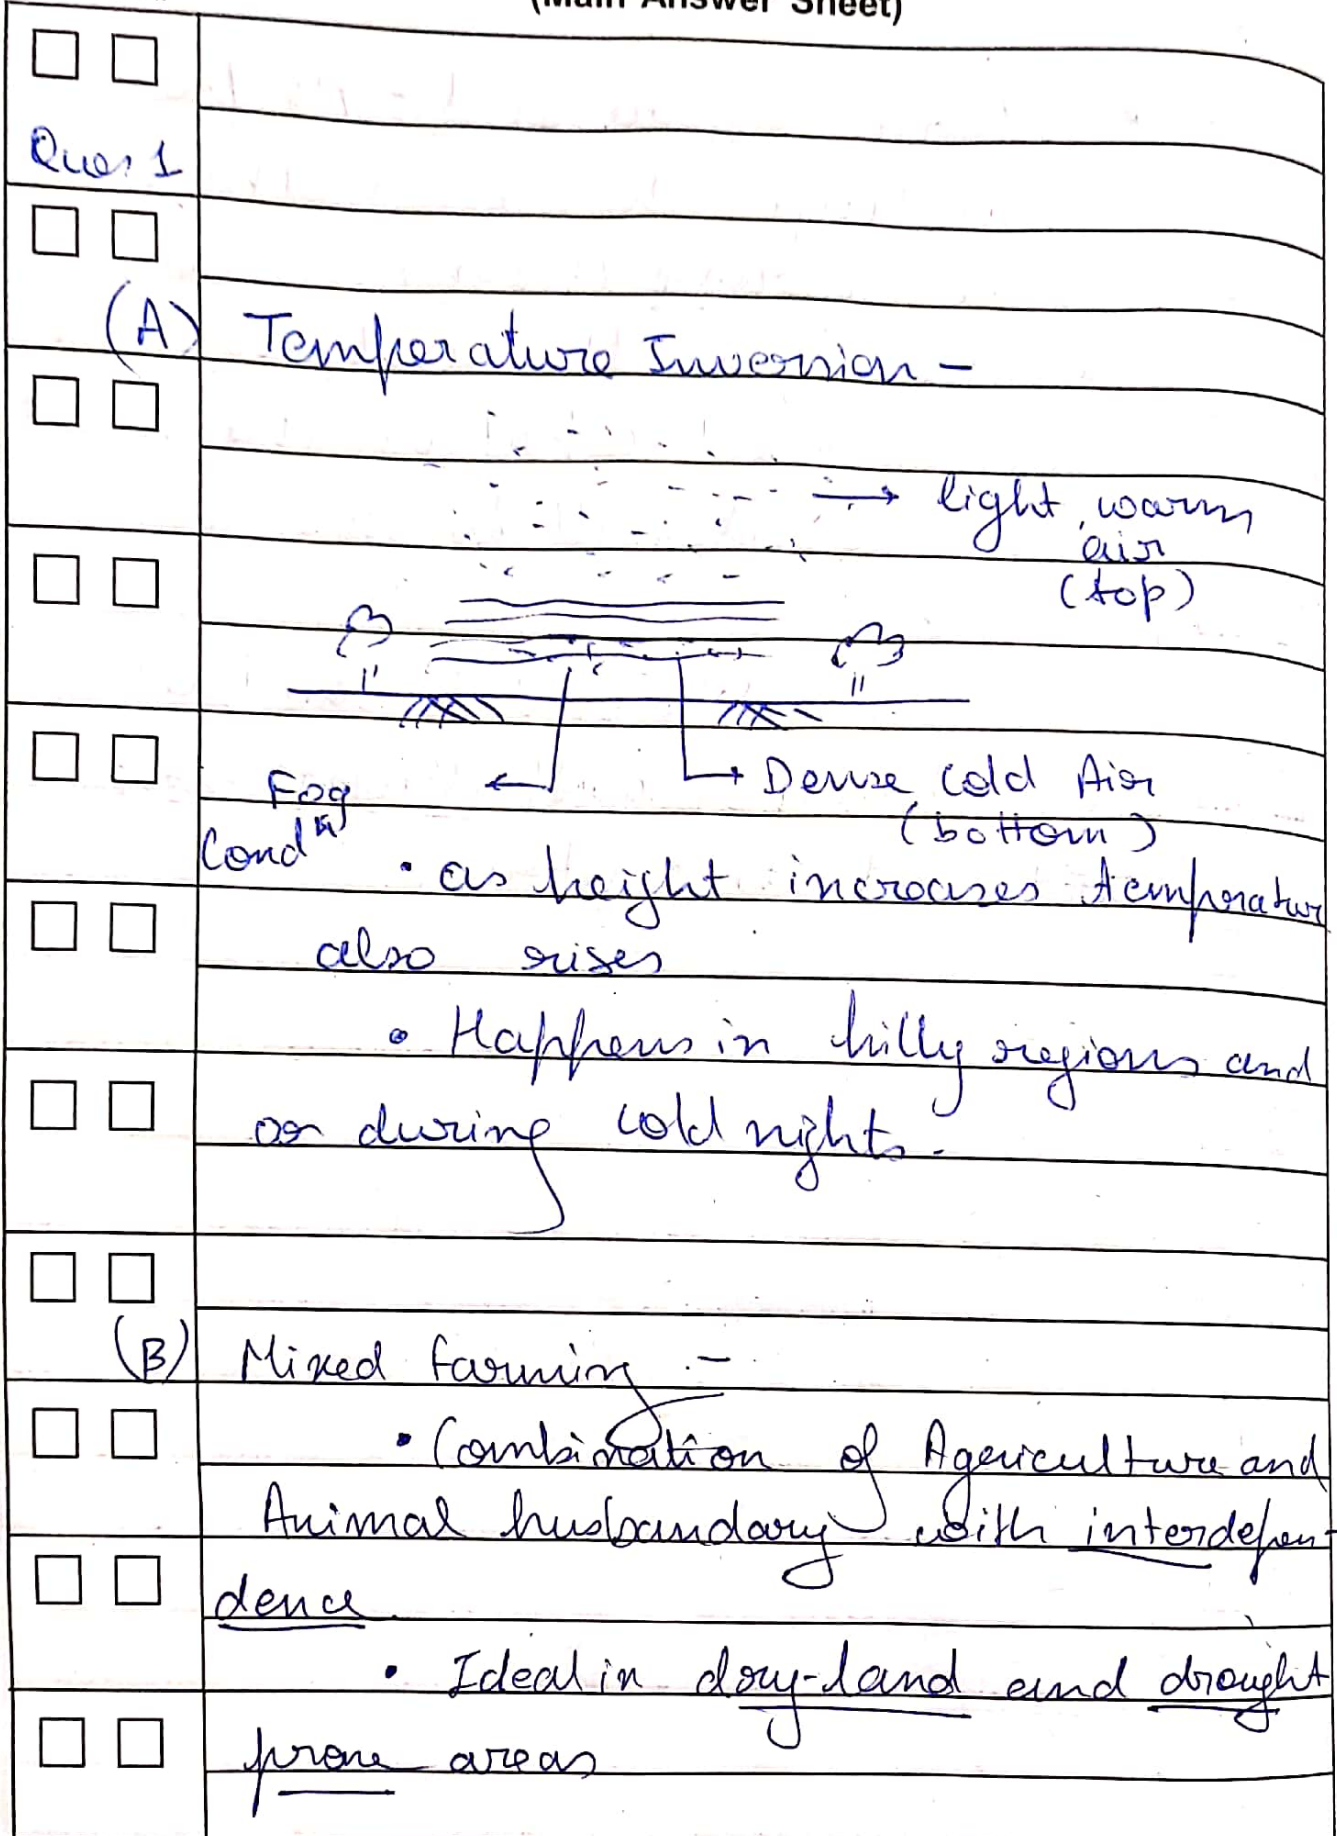 (Main Answer Sheet)
Ques 1
(A) Temperature Inversion -
→ light, warm
air
(top)
Fog
Condⁿ
→ Dense Cold Air
(bottom)
• as height increases temperatur
also rises
• Happens in hilly regions and
or during cold nights.
(B) Mixed farming :-
• Combination of Agericulture and
Animal husbandary with interdepen-
dence
• Ideal in dry-land and drought
prone areas